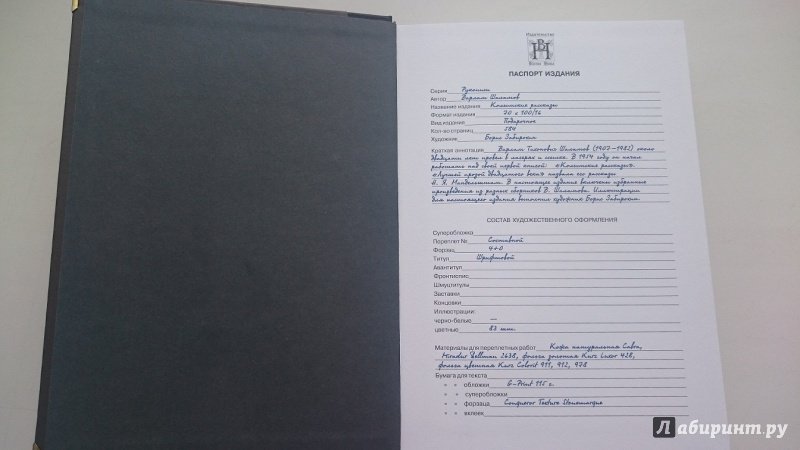 Издательство
ВН
Вита Нова
ПАСПОРТ ИЗДАНИЯ
Серия Рукописи
Автор Варлам Шаламов
Название издания Колымские рассказы
Формат издания 70 х 100/16
Вид издания Подарочное
Кол-во страниц 584
Художник Борис Забирохин
Краткая аннотация Варлам Тихонович Шаламов (1907–1982) около
двадцати лет провел в лагерях и ссылках. В 1954 году он начал
работать над своей первой книгой «Колымские рассказы».
«Лучшей прозой двадцатого века» назвала его рассказы
Н. Я. Мандельштам. В настоящее издание включены избранные
произведения из разных сборников В. Шаламова. Иллюстрации
для настоящего издания выполнил художник Борис Забирохин.
СОСТАВ ХУДОЖЕСТВЕННОГО ОФОРМЛЕНИЯ
Суперобложка
Переплет № Составной
Форзац 4+0
Титул Шрифтовой
Авантитул
Фронтиспис
Шмуцтитулы
Заставки
Концовки
Иллюстрации:
черно-белые —
цветные 83 илл.
Материалы для переплетных работ Кожа натуральная Cabra,
Mirador Skillman 2638, фольга золотная Kurz Luxor 428,
фольга цветная Kurz Colorit 911, 912, 978
Бумага для текста
" " обложки G-Print 115 г.
" " суперобложки
" " форзаца Conqueror Texture Stonemarque
" " вклеек
Лабиринт.ру